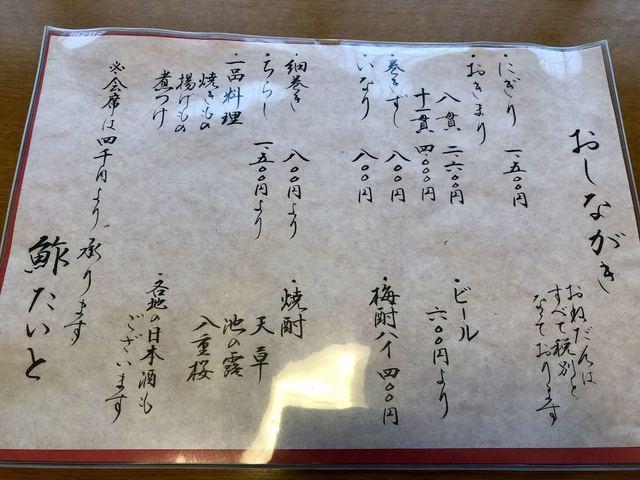 おしながき
おねだんは
すべて税別と
なっております
・にぎり 一、五〇〇円
・おきまり
八貫 二、六〇〇円
十一貫 四、〇〇〇円
・巻きずし 八〇〇円
・いなり 八〇〇円
・細巻き 八〇〇円より
・ちらし 一、五〇〇円より
・一品料理
焼きもの
揚げもの
煮つけ
※会席は四千円より承ります
・ビール
六〇〇円より
・梅酎ハイ 四〇〇円
・焼酎
天草
池の露
八重桜
・各地の日本酒も
ございます
鮓たいと